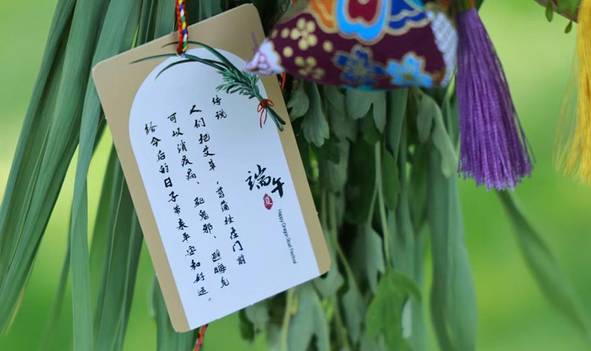 端午
Happy Dragon Boat Festival
传说
人们把艾草、菖蒲挂在门前
可以消灾病、驱鬼邪、避晦气
给今后的日子带来平安和好运。